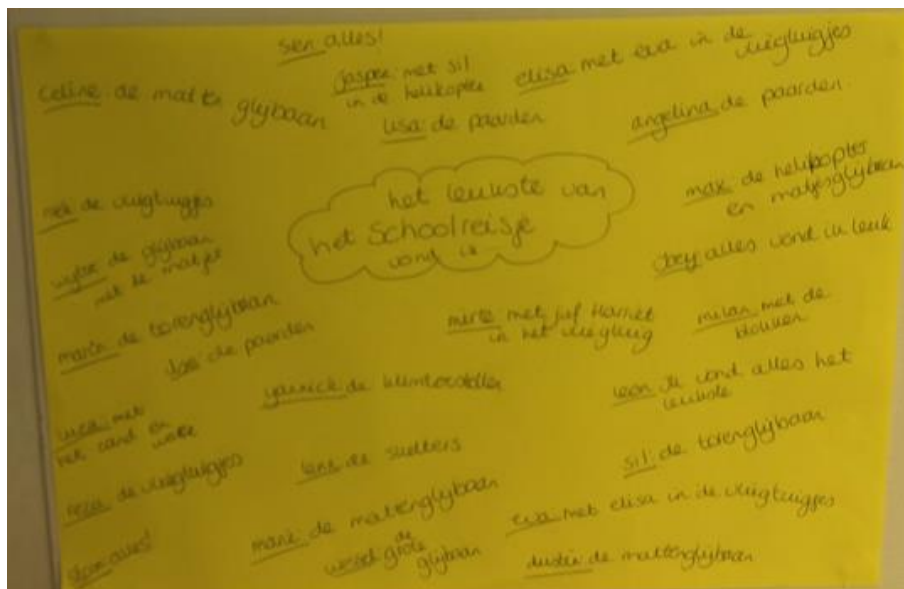 sen: alles!
celine: de matten glijbaan
jasper: met sil
in de helikopter
elisa met eva in de
vliegtuigjes
lisa: de paarden
angelina de paarden.
het leukste van
het Schoolreisje
vond ik
max: de helikopter
en matjesglijbaan
de vliegtuigjes
wytse de glijbaan
met de matjes
joey alles vond ik leuk
de torenglijbaan
de paarden
merte met juf Harriet
in het vliegtuig
milan met de
blokken
yannick de
leon ik vond alles het
leukste
met
het zand en
water
de vliegtuigjes
lens de skelters
sil: de torenglijbaan
de mattenglijbaan
eva met elisa in de vliegtuigjes
de
grote
glijbaan
alles!
dustin: de mattenglijbaan